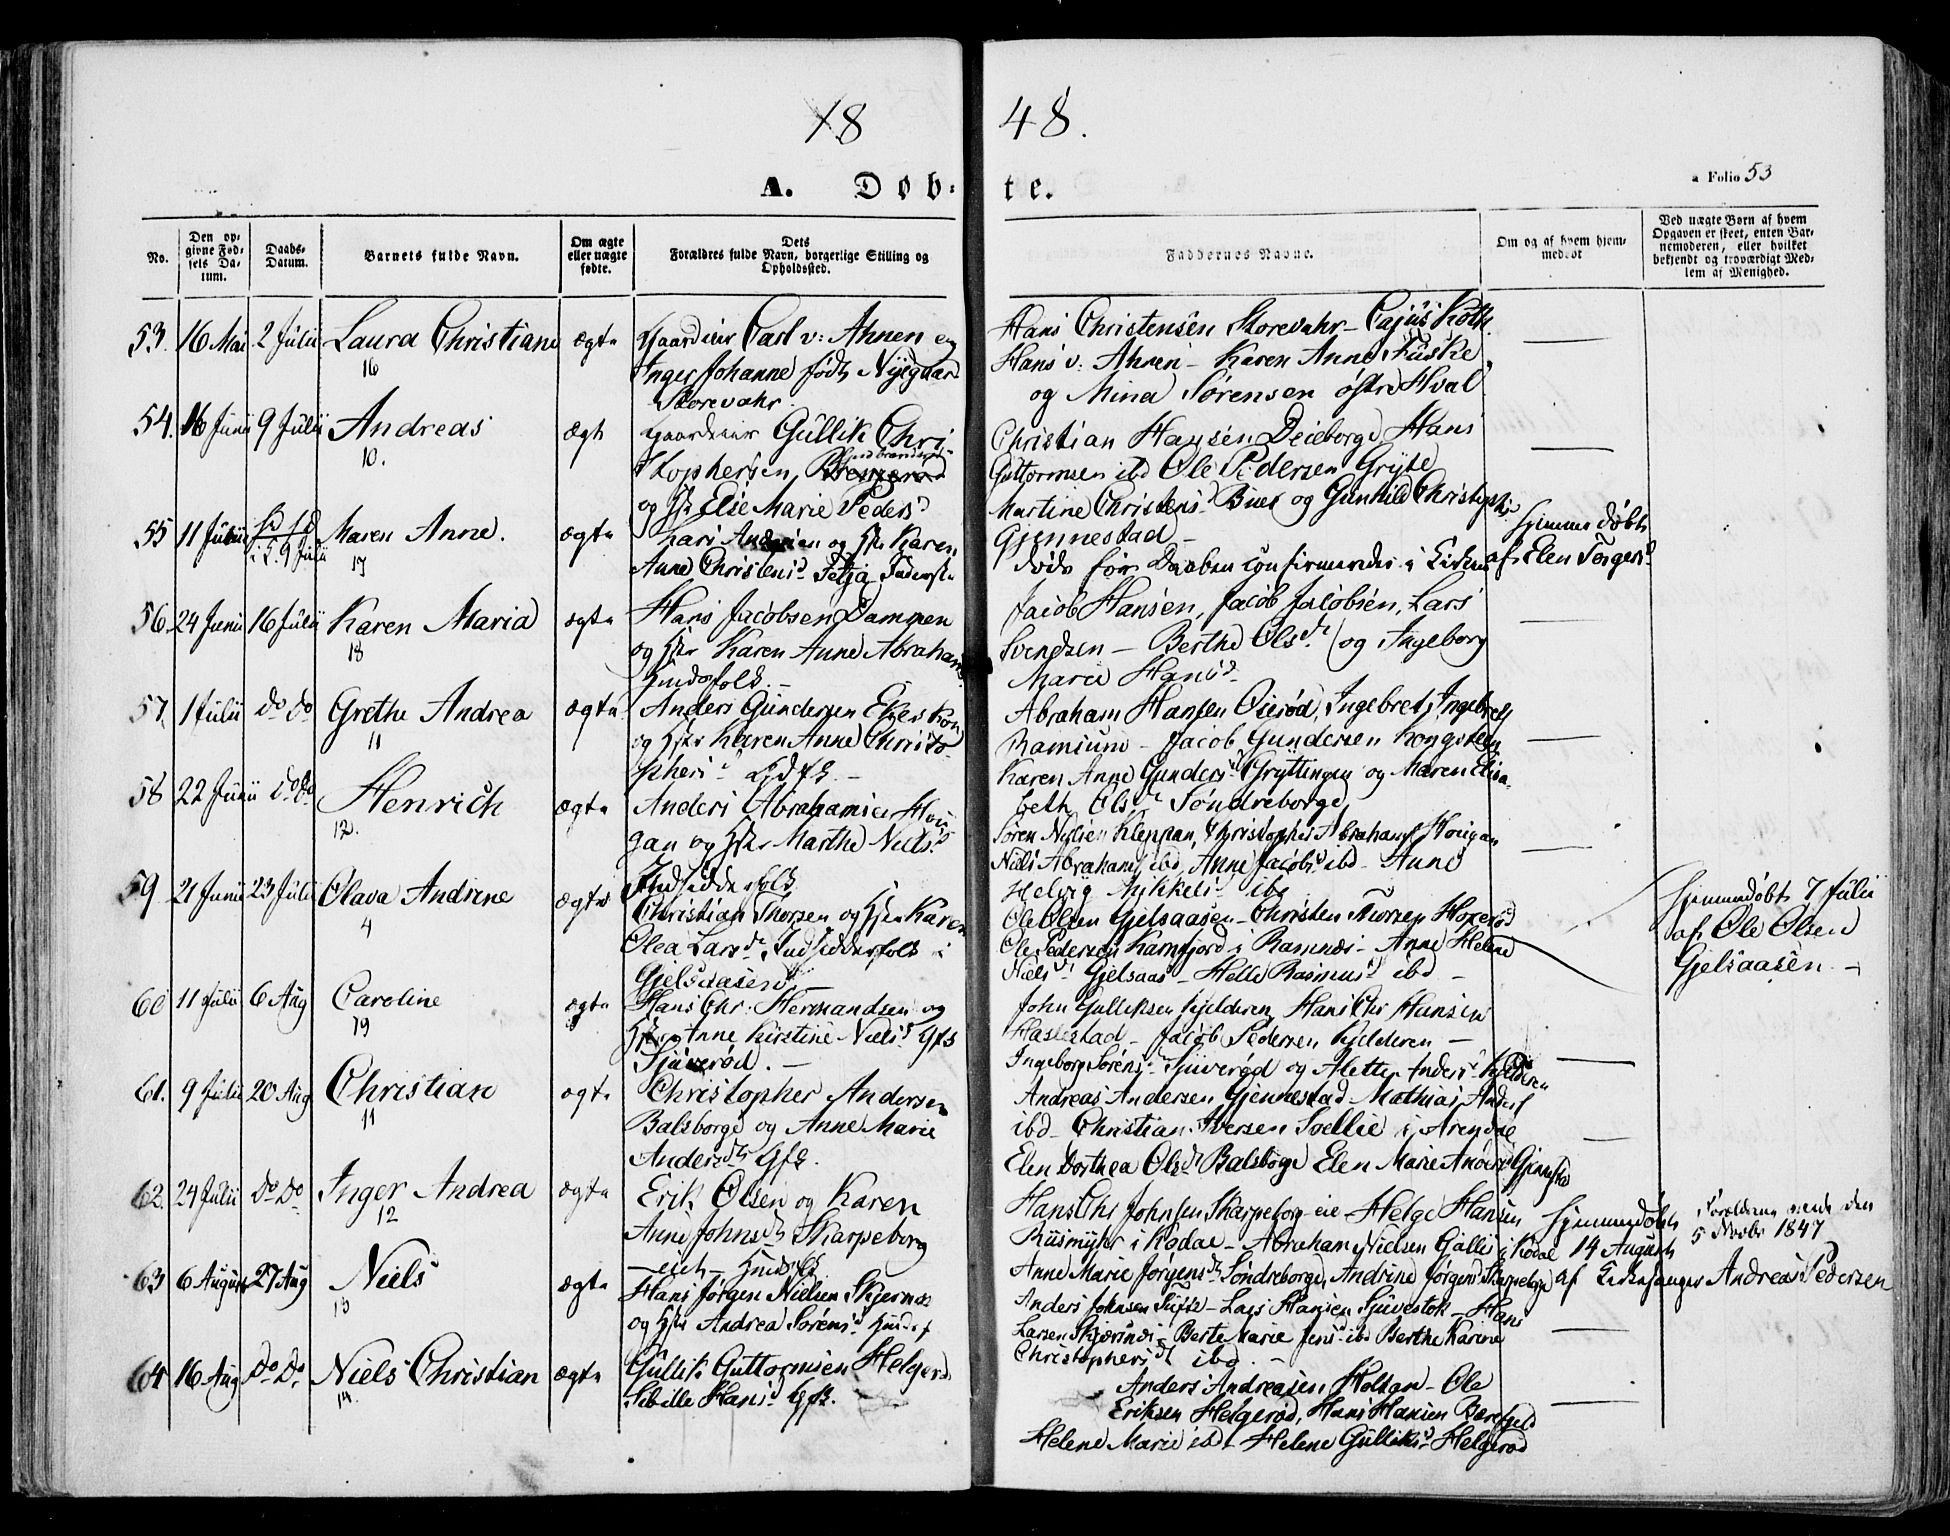 1848.
A. Døb-te.
a Folio 53
No.
Den op-
givne Fød-
sels Da-
tum.
Daabs-
Datum.
Barnets fulde Navn.
Om ægte
eller uægte
fødte.
Dets
Forældres fulde Navn, borgerlige Stilling og
Opholdssted.
Faddernes Navne.
Om og af hvem hjem-
medøbt
Ved uægte Børn af hvem
Opgaven er skeet, enten Bar-
nemoderen, eller hvilket
bekjendt og troværdigt Med-
lem af Menighed.
53. 16 Mai 2 Julii Laura Christiane ægte
16
Gaardeier Carl v: Ahnen og
Inger Johanne født Nyegaard
Storevahr.
Hans Christensen Storevahr - Cajus Koth.
Hans v: Ahnen - Karen Anne Fuske
og Mina Sørensen østre Hval
54. 16 Junii 9 Julii Andreas ægte
10.
Gaardeier Gullik Chri-
stophersen
og Hst Else Marie Peders d
Christian Hansen Deieborge Hans
Guttormsen ibd Ole Pedersen Gryte
Martine Christens d Buer og Gunhild
Gjennestad -
55 11 Julii 9 Julii Maren Anne. ægte
17
Andersen og Hst Karen
Anne Christens d
døde før Daaben confirmeredes i Kirken
hjemmedøbt
af Elen Torgers d
56. 24 Junii 16 Julii Karen Maria ægte
18
Hans Jacobsen Dammen
og Hst Karen Anne Abrahams d
Huusfolk. -
Jacob Hansen, Jacob Jacobsen, Lars
Svendsen - Berthe Ols dr og Ingeborg
Marie Hans d
57. 1 Julii do do Grethe Andrea ægte
11
Anders Gundersen
og Hst Karen Anne Christo-
phers d
Abraham Hansen Oierød, Ingebret
Ramsum - Jacob Gundersen
Karen Anne Gunders d Gryttingen og Maren Elisa-
beth Ols dr Søndreborge,
58 22 Junii do do Henrich ægte
12.
Anders Abrahamsen Hou-
gan og Hst Marthe Niels d
Indsidderfolk
Søren Nielsen Kleppan, Christopher Abrahams Hougan
Niels Abrahams ibd, Anne Jacobs d ibd - Anne
Helvig Mikkels d ibd
59 21 Junii 23 Julii Olava Andrine ægte
4
Christian Thorsen og Hst Karen
Olea Lars dr Indsidderfolk i
Gjelsaasen
Ole Olsen Gjelsaasen - Christen Thorsen
Ole Pedersen i Ramnes - Anne Helene
Niels d Gjelsaas - Helle Rasmus d ibd -
hjemmedøbt 7 Julii
af Ole Olsen
Gjelsaasen -
60 11 Julii 6 Aug Caroline ægte
19
Hans Chr: Hermandsen og
Hst Anne Kirstine Niels d Gfs
Sjuverød. -
John Gulliksen Kjelderen, Hans Chr Hansen
Haslestad - Jacob Pedersen Kjelderen -
Ingeborg Sørens d Sjuverød og Mette Anders d Kjelderen
61. 9 Julii 20 Aug Christian ægte
11
Christopher Andersen
Balsborge og Anne Marie
Anders dr Gfs.
Andreas Andersen Gjennestad Mathias Anders
ibd - Christian Iversen Sollie i Arendal
Elen Dorthea Ols d Balsborge Elen Marie Anders Gjennestad
62. 24 Julii do do Inger Andrea ægte
12
Erik Olsen og Karen
Anne Johns dr Skarpeborg
- eie -
Hans Chr Johnsen Skarpeborg-eie - Helge Hansen
Rusmyhr i Kodal - Abraham Nielsen Gallis i Kodal
Anne Marie Jørgens dr Søndreborge, Andrine Jørgens d Skarpeborg
hjemmedøbt
14 August
af Kirkesanger Andreas Pedersen
Forældrene viede den
5 Novbr 1847
63 6 August 27 Aug Niels ægte
13
Hans Jørgen Nielsen Skjernæs
og Hst Andrea Sørens d
Anders Johnsen - Lars Hansen Sjuvestok - Hans
Larsen Skjærnæs - Berte Marie Jens d ibd Berthe Karine
Christophers dr ibd. -
64 16 Aug do do Niels Christian ægte
14.
Gullik Guttormsen Helgerød
Sibille Hans d Gfk.
Anders Andreasen Holtan - Ole
Eriksen Helgerød, Hans Hansen
Helene Marie ibd - Helene Gulliks d Helgerød